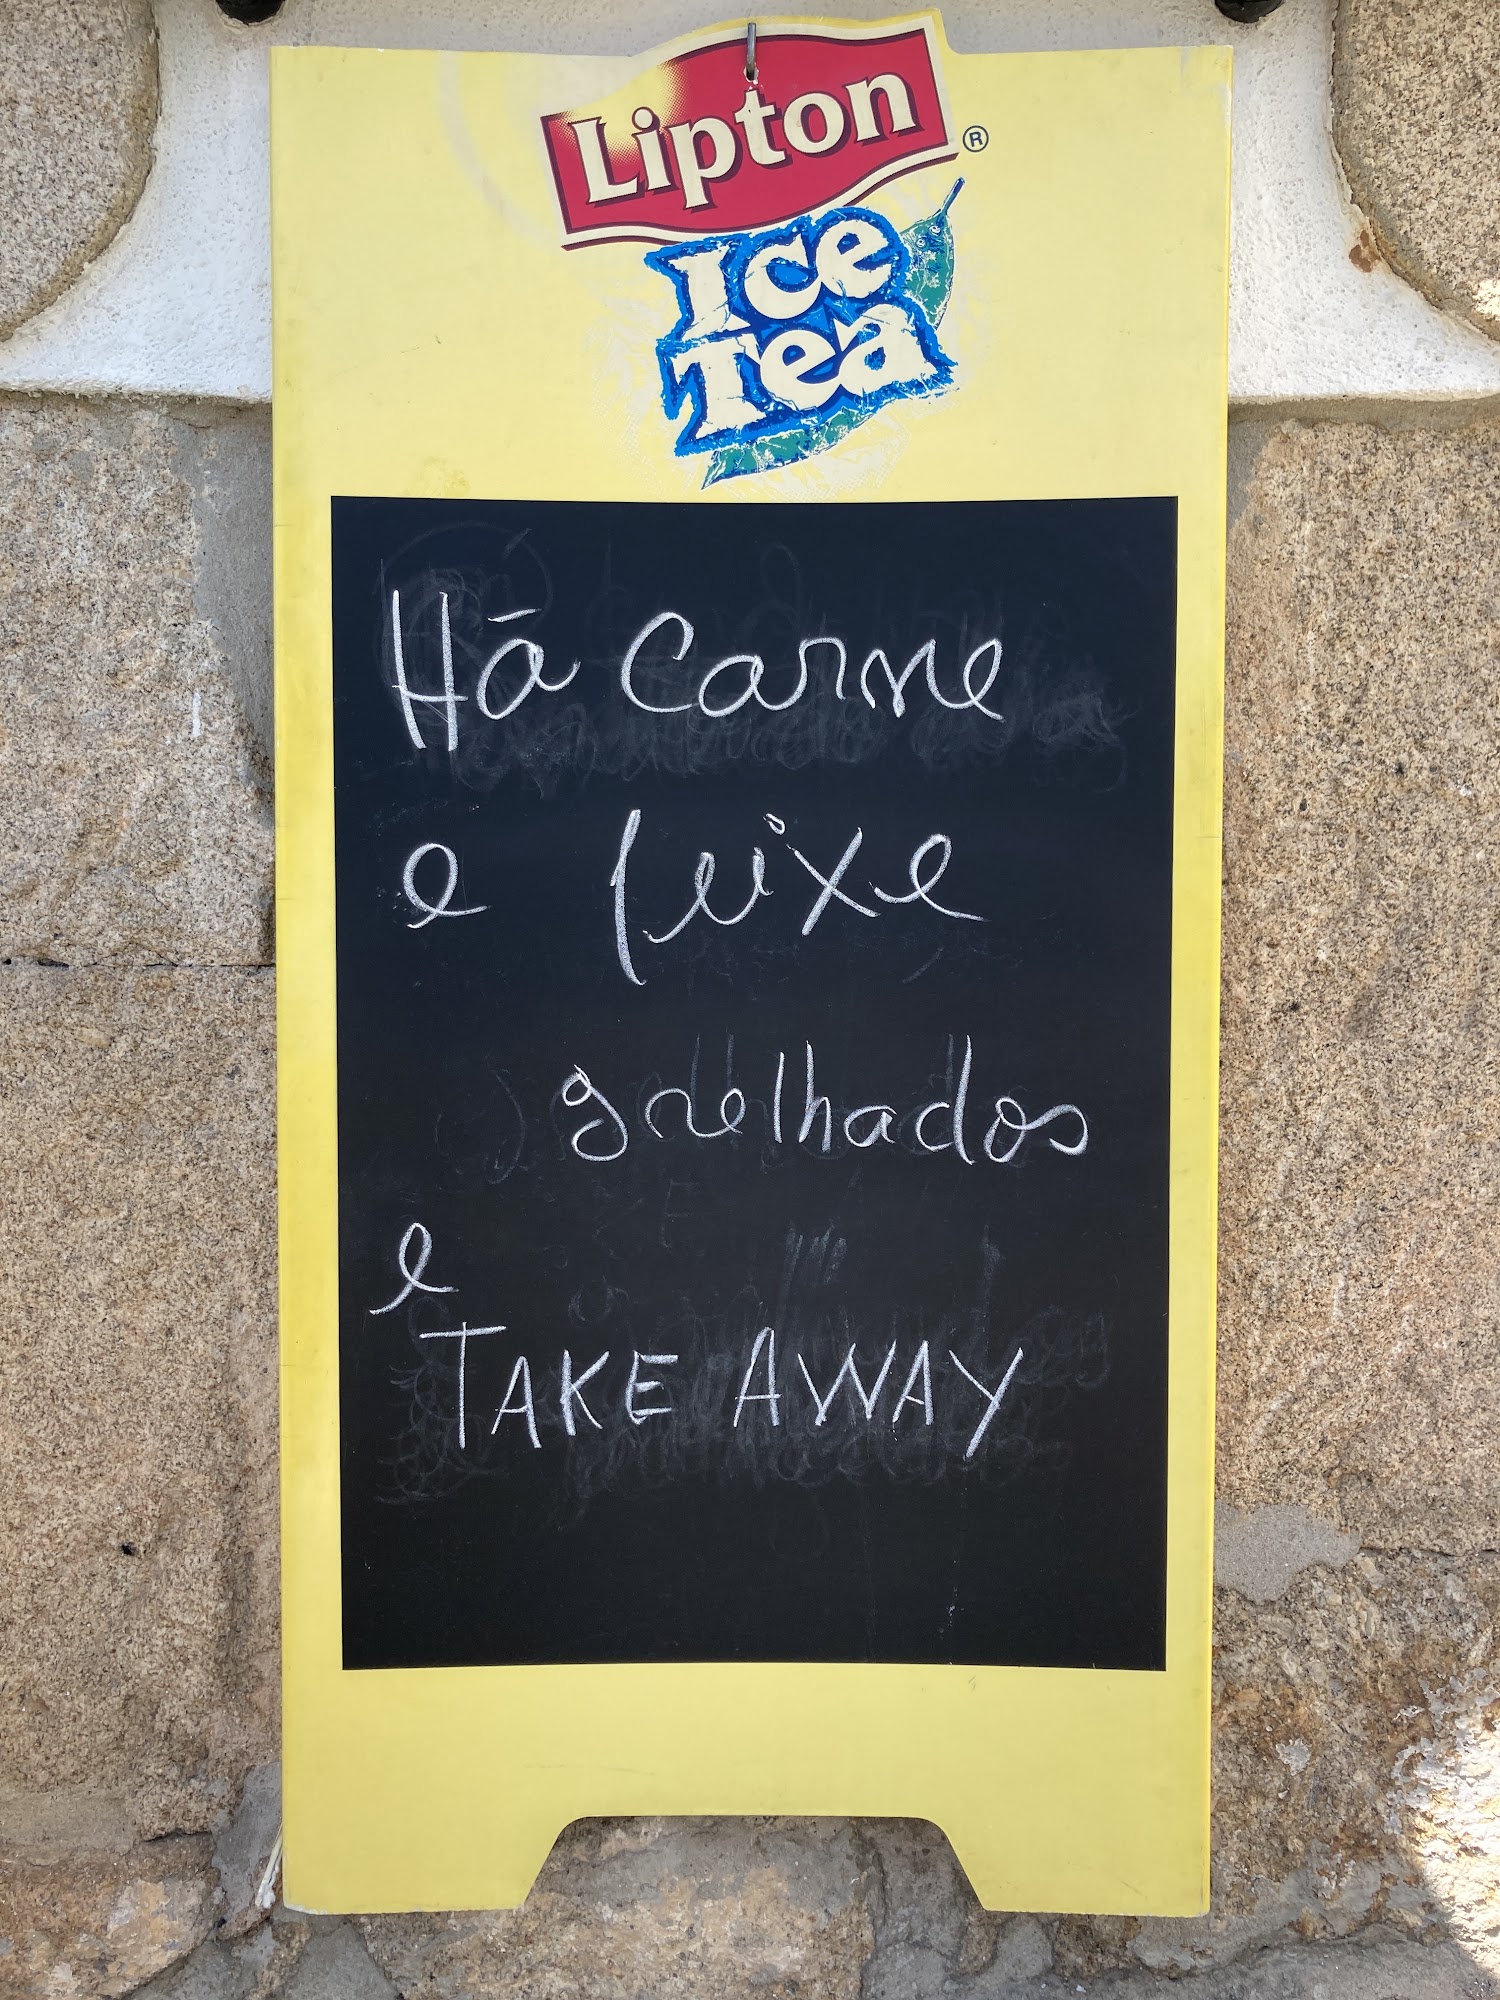 Lipton ®
Ice
Tea
Há carne
e peixe
grelhados
e
TAKE AWAY